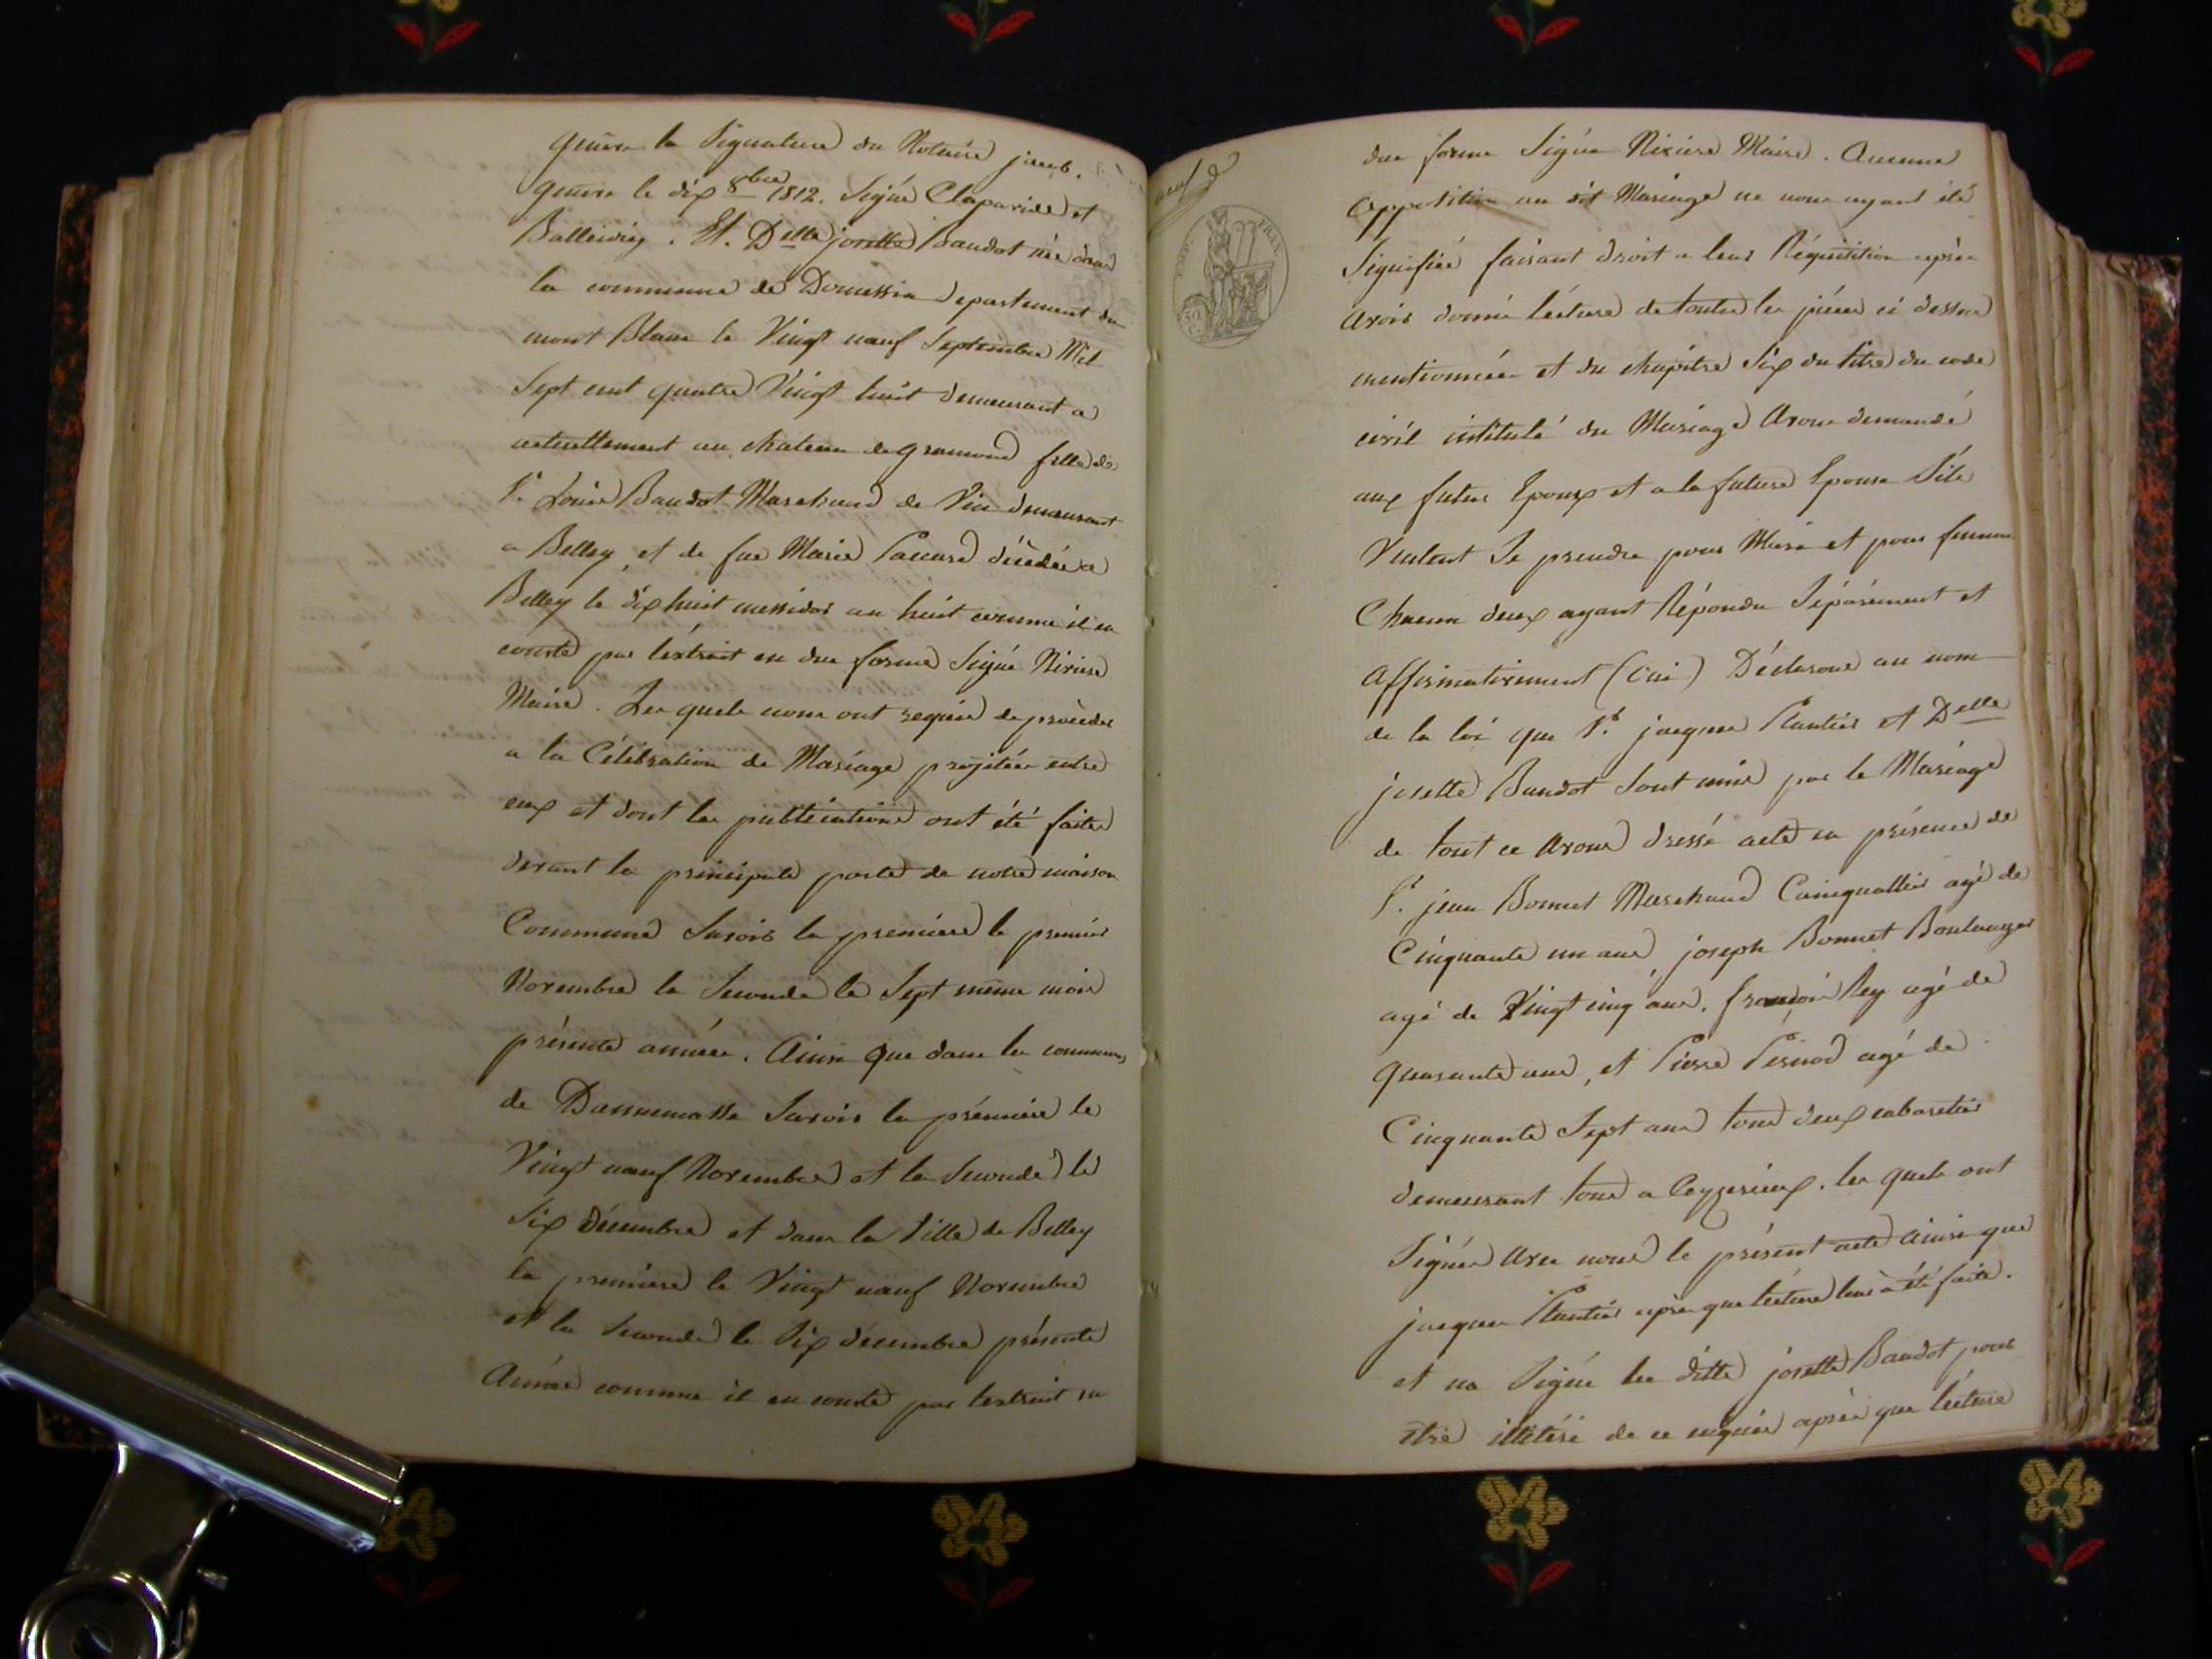 genève la Signature du Notaire jacob.
genève le dix 8bre 1812. Signé Claparide et
Et. Delle josette Baudot née dans
la commune de Domessin departement du
mont Blanc le Vingt neuf Septembre Mil
Sept cent quatre Vingt huit demeurant a
actuellement au chateau de gramond fille de
Sr. Louis Baudot Marchand de Vin demeurant
a Belley, et de fue Marie décédée a
Belley le dix huit messidor an huit comme il en
conste par léxtrait en due forme Signé
Maire. Les quels nous ont requis de procèder
a la Célébration de Mariage projetée entre
eux et dont les publications ont été faites
devant la principale porte de notre maison
Commune Savoir la première le premier
Novembre la Seconde le Sept même mois
présente année. Ainsi que dans la commune
de Savoir la prémière le
Vingt neuf Novembre et la Seconde le
Six décembre et dans la Ville de Belley
la premiere le Vingt neuf Novembre
et la Seconde le Six décembre présente
Année comme il en conste par lextrait en
neuf
EMP. FRAN.
due forme Signée Maire. Aucune
Opposition au dit Mariage ne nous ayant été
Signifiée faisant droit a leur Réquisition après
avoir donné lécture de toutes les pièces ci dessus
mentionnées et du chapitre Six du titre du code
civil intitulé du Mariage Avons demandé
aux futur Epoux et a la future Epouse S'ils
Veulent Se prendre pour Mari et pour femme
Chacun deux ayant Répondu Séparément et
affirmativement (oui) Déclarons au nom
de la loi que Sr. jacques Plantier et Delle
josette Baudot Sont unis par le Mariage
de tout ce Avons dressé acte en présence de
Sr. jean Bonnet Marchand agé de
Cinquante un ans joseph Bonnet Boulanger
agé de Vingt cinq ans. françois Rey agé de
quarante ans, et Pierre Pernod agé de
Cinquante Sept ans tous deux cabaretier
demeurant tous a Ceyzerieux. les quels ont
Signés avec nous le présent acte ainsi que
jacques Plantier après que lécture leur à été faite.
et na Signé la ditte josette Baudot pour
etre de ce enquise après que lécture